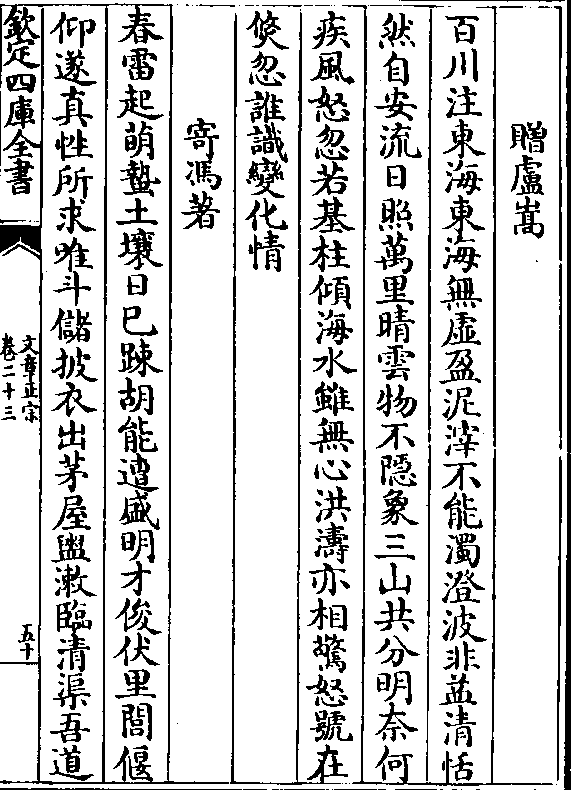 贈盧嵩
百川注東海東海無虛盈泥滓不能濁澄波非益清恬
然自安流日照萬里晴雲物不隱象三山共分明奈何
疾風怒忽若基柱傾海水雖無心洪濤亦相驚怒號在
倐忽誰識變化情
寄馮著
春雷起萌蟄土壤日已踈胡能遭盛明才俊伏里閭偃
仰遂真性所求唯斗儲披衣出茅屋盥漱臨清渠吾道
欽定四庫全書
文章正宗
卷二十三
五十